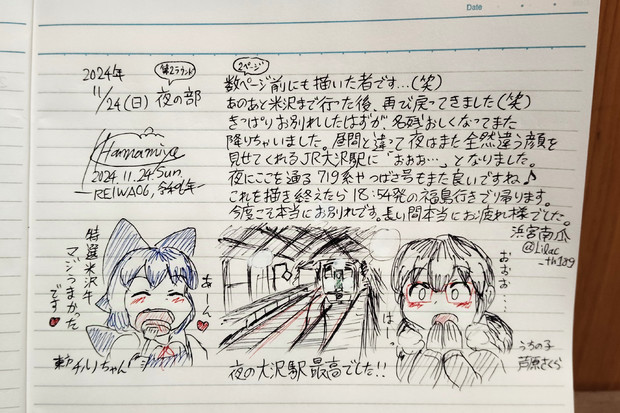 Date
2024年
11/24(日) 夜の部
第2ラウンド
Hamamiya
2024.11.24.Sun
REIWA06, 令和6年
2ページ
数ページ前にも描いた者です…(笑)
あのあと米沢まで行った後、再び戻ってきました(笑)
きっぱりお別れしたはずが名残おしくなってまた
降りちゃいました。昼間と違って夜はまた全然違う顔を
見せてくれるJR大沢駅に「おぉぉ…」となりました。
夜にここを通る719系やつばさ号もまた良いですね♪
これを描き終えたら18:54発の福島行きで帰ります。
今度こそ本当にお別れです。長い間本当にお疲れ様でした。
浜宮南瓜
@Lilac
特選米沢牛
マジうまかった
です
あーん
東方チルノちゃん
はー。
おぉぉ…
うちの子
芦原さくら
夜の大沢駅最高でした!!